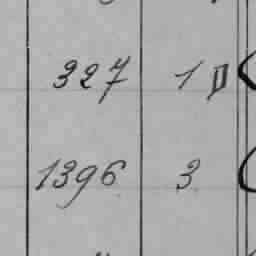 327 1
1396 3